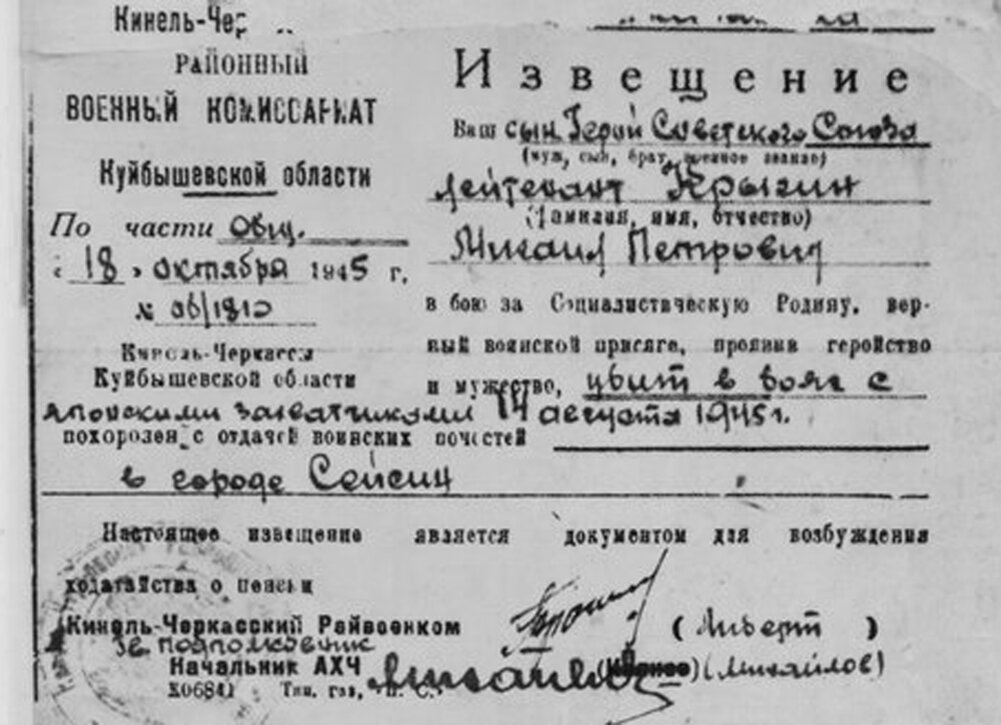 Кинель-Чер
РАЙОННЫЙ
ВОЕННЫЙ КОМИССАРИАТ
Куйбышевской области
По части Общ.
„18" октября 1945 г.
№ Об/1810
Кинель-Черкассы
Куйбышевской области
Извещение
Ваш сын Герой Советского Союза
(муж, сын, брат, военное звание)
лейтенант Крыгин
(фамилия, имя, отчество)
Михаил Петрович
в бою за Социалистическую Родину, вер-
ный воинской присяге, проявив геройство
и мужество, убит в боях с
японскими захватчиками 14 августа 1945 г.
похоронен с отдачей воинских почестей
в городе Сейсин
Настоящее извещение является документом для возбуждения
ходатайства о пенсии
Кинель-Черкасский Райвоенком (Линверт)
подполковник
Начальник АХЧ (Михайлов)
Х06841 Тип. газ.